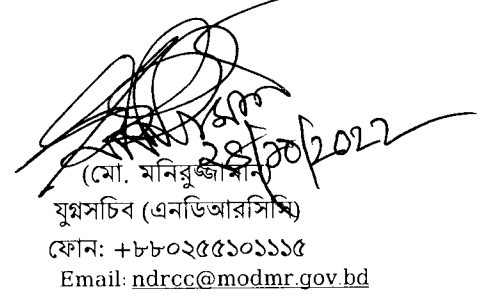 ২৪/১০/2022
(মো. মনিরুজ্জামান)
যুগ্মসচিব (এনডিআরসিসি)
ফোন: +৮৮০২৫৫১০১১১৫
Email: ndrcc@modmr.gov.bd